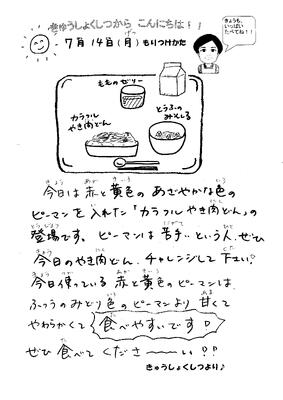 きゅうしょくしつから こんにちは!!
きょうも、
いっぱい
たべてね!!
7月14日(月)もりつけかた
もものゼリー
カラフル
やき肉どん
とうふの
みそしる
今日は赤と黄色のあざやかな色の
ピーマンを入れた「カラフルやき肉どん」の
登場です。ピーマンは苦手という人、ぜひ
今日のやき肉どん、チャレンジして下さい。
今日使っている赤と黄色のピーマンは、
ふつうのみどり色のピーマンより甘くて
やわらかくて食べやすいです♡
ぜひ食べてくださ〜〜〜い!?
きゅうしょくしつより♪